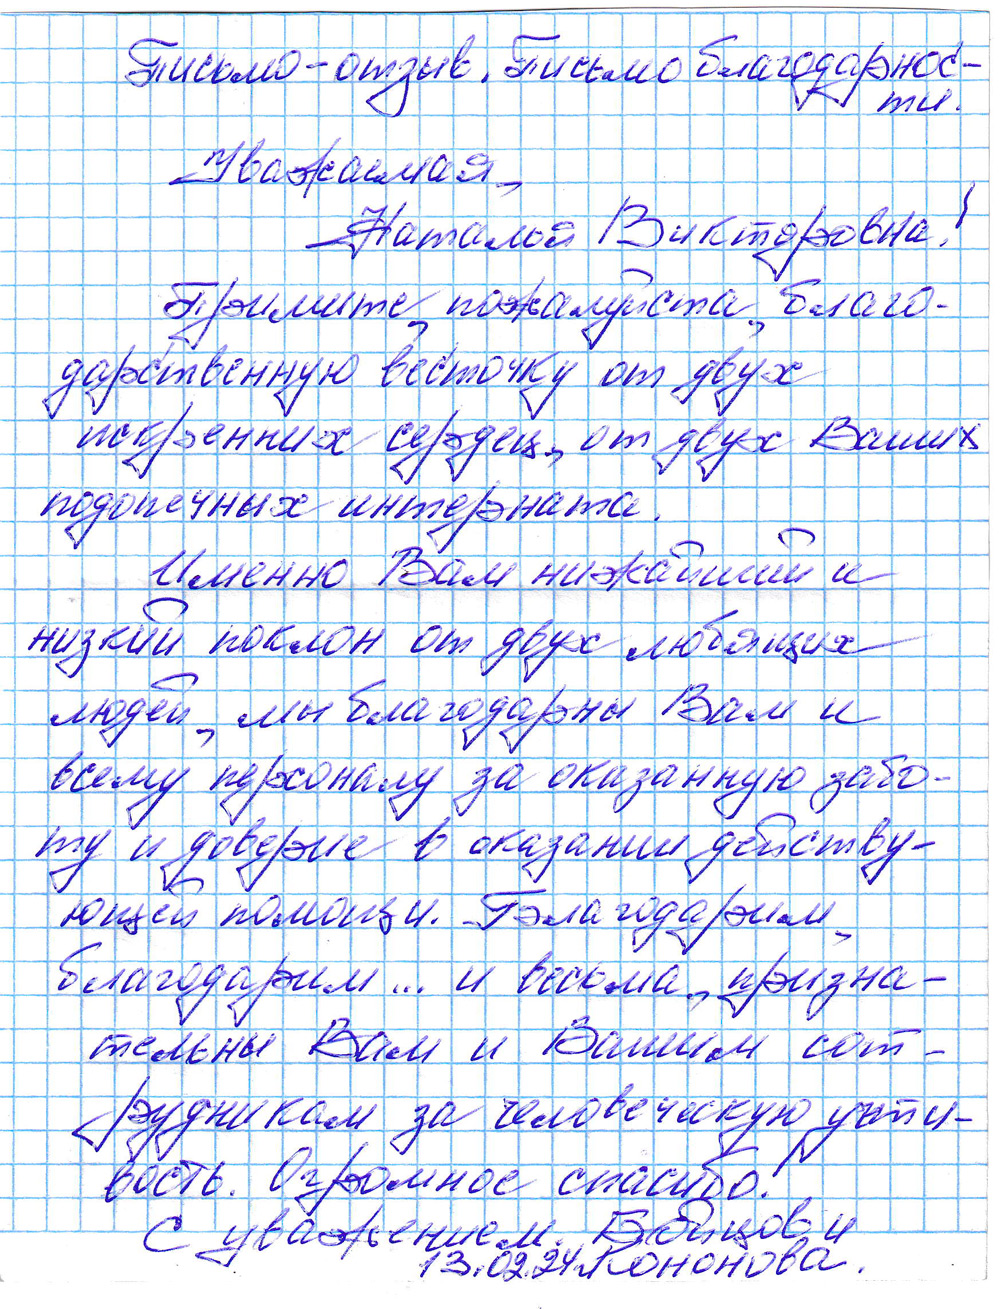 Письмо-отзыв. Письмо благодарнос-
ти.
Уважаемая,
Наталья Викторовна!
Примите, пожалуйста, благо-
дарственную весточку от двух
искренних сердец, от двух Ваших
подопечных интерната.
Именно Вам нижайший и
низкий поклон от двух любящих
людей, мы благодарны Вам и
всему персоналу за оказанную забо-
ту и доверие в оказании действу-
ющей помощи. Благодарим,
благодарим... и весьма, призна-
тельны Вам и Вашим сот-
рудникам за человеческую учти-
вость. Огромное спасибо!
С уважением. и
13.02.24 Кононова.